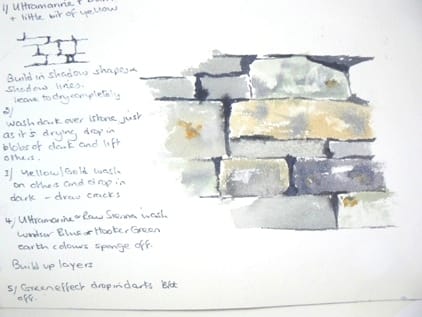 1) Ultramarine +
+ little bit of yellow
Build in shadow shapes
shadow lines.
leave to dry completely
2)
wash dark over stone just
as it's drying drop in
blobs of dark and lift
others.
3) Yellow/Gold wash
on others and drop in
dark - draw cracks
4) Ultramarine or Raw Sienna wash
Windsor Blue or Hooker Green
earth colours sponge off.
Build up layers
5) Green effect drop in darts
off.